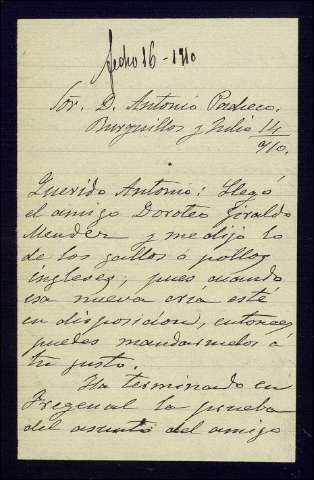 fecho 16 - 1910
Sor. D. Antonio Pacheco.
Burguillos y Julio 14/910.
Querido Antonio: Llegó
el amigo Doroteo Giraldo
Mendez y me dijo lo
de los gallos ó pollos
ingleses, pues cuando
esa nueva cria esté
en disposicion, entonces
puedes mandarmelos á
tu gusto.
Ha terminado en
Fregenal la prueba
del asunto del amigo